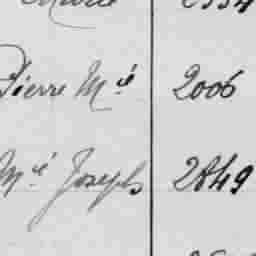 Pierre Mié 2006
Mié Joseph 2849